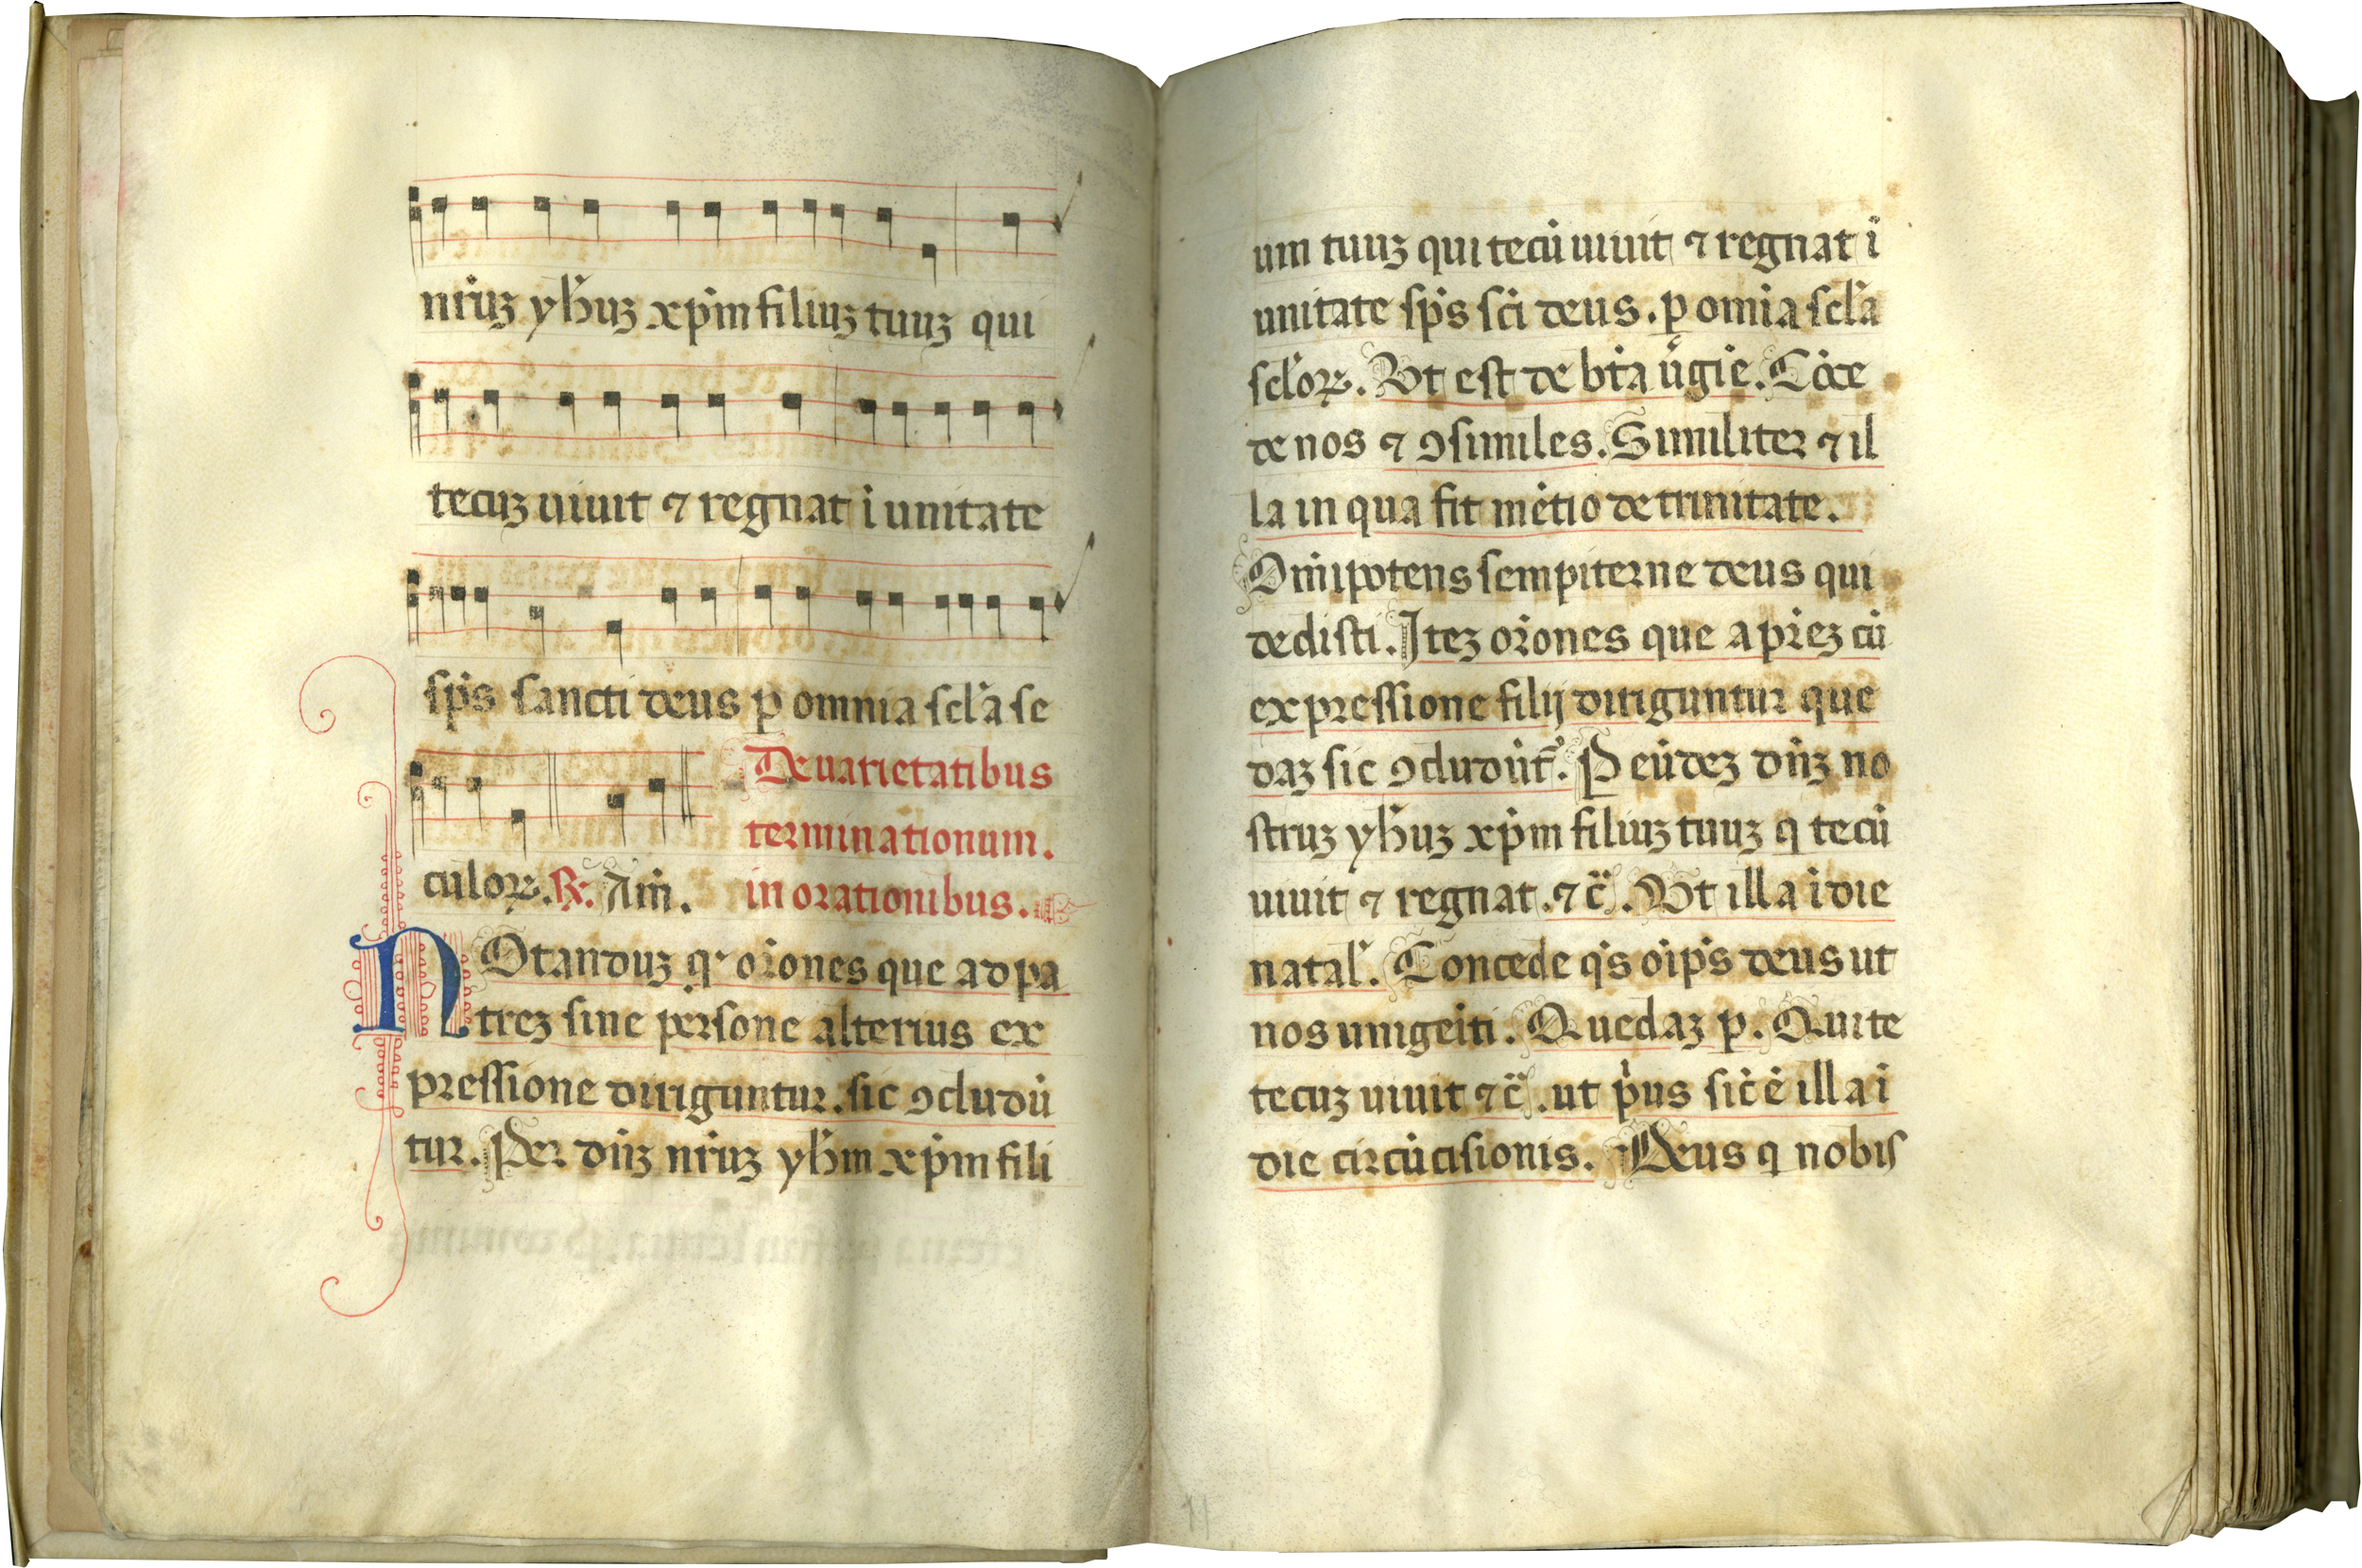 nr̄uꝫ yh̄uꝫ xp̄m filiuꝫ tuuꝫ qui
tecuꝫ uiuit ⁊ regnat ī unitate
sp̄s sancti deus ꝑ omnia scl̄a se
De uarietatibus
terminationum.
culoꝝ. ℟. Am̄.
in orationibus.
NOtanduꝫ qꝛ or̄ones que ad pa
treꝫ sine persone alterius ex
pressione diriguntur. sic ꝯcludū
tur. Per dn̄ꝫ nr̄uꝫ yh̄m xp̄m fili
um tuuꝫ qui tecū uiuit ⁊ regnat ī
unitate sp̄s sc̄i deus. ꝑ om̄ia scl̄a
scl̄oꝝ. Vt est de bt̄a ūgīe. Cōce
de nos ⁊ ꝯsimiles. Similiter ⁊ il
la in qua fit mētio de trinitate.
Om̄ipotens sempiterne deus qui
dedisti. Iteꝫ or̄ones que a pr̄eꝫ cū
expressione filij diriguntur que
daꝫ sic ꝯcludūt᷑. P eūdeꝫ dn̄ꝫ no
struꝫ yh̄uꝫ xp̄m filiuꝫ tuuꝫ q tecū
uiuit ⁊ regnat. ⁊c̄. Vt illa ī die
natal̄. Concede qs̄ oīps̄ deus ut
nos unigēiti. Quedaꝫ ꝑ. Qui te
tecuꝫ uiuit ⁊c̄. ut p̄us sic̄ ē illa ī
die circūcisionis. Deus q nobis
11